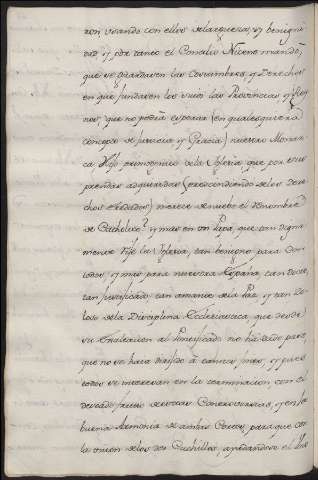 ron usando con ellos de larguesa, y benigni
dad y por tanto el Concilio Niceno mandó,
que se guardasen las Costumbres, y Derechos
en que fundaren los suios las Provincias, y Rey
nos, que no podrá esperar (en qualesquiera
concepto de Justicia y Gracia) nuestro Monar
ca Hijo primogenito de la Yglesia, que por sus
prendas adquiridas (prescindiendo de los dere
chos heredados) merece de nuebo el Renombre
de Catholico? y mas en un Papa, que tan digna
mente rije la Yglesia, tan benigno para con
todos, y mas para nuestra España, tan docto,
tan justificado, tan amante de la Paz, y tan Ze
loso de la Disciplina Eclesiastica, que desde
su Exaltacion al Pontificado no ha dado paso,
que no se haya dirijido á tantos fines, y pues
todos se interesan en la terminacion con el
deseado fruto de estas Controversias, y en la
buena Armonia de ambas Cortes, para que con
la union de los dos Cuchillos, ayudandose el